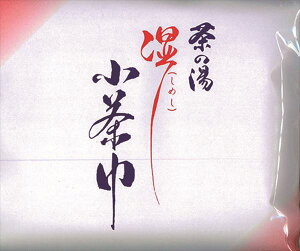 茶の湯
湿し(しめし)
小茶巾